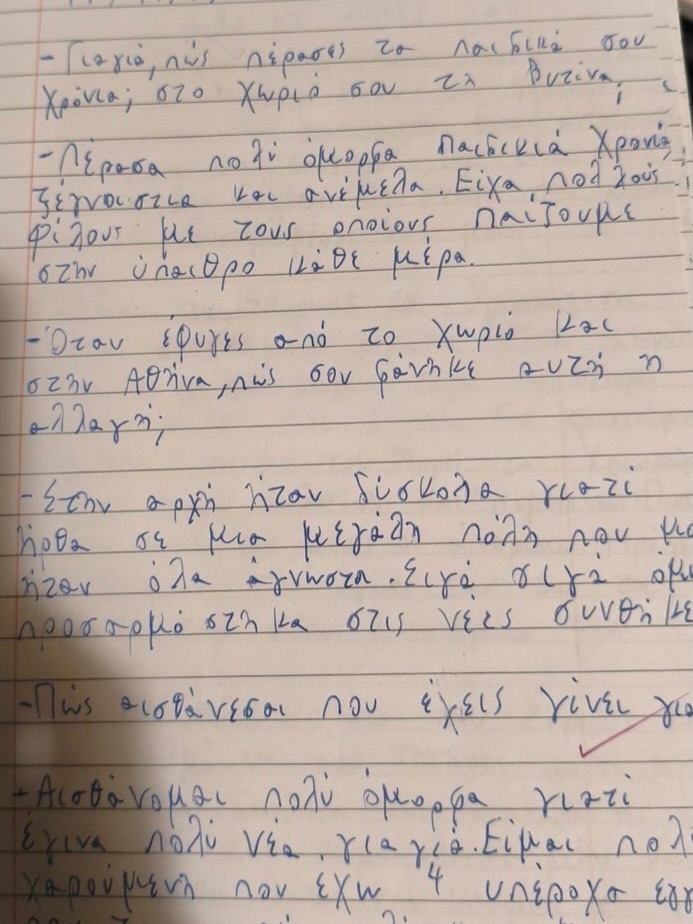 - Γιαγιά, πώς πέρασες τα παιδικά σου
χρόνια; στο χωριό σου τη Βυτίνα;
- Πέρασα πολύ όμορφα παιδικιά χρονιά,
ξέγνοιστια και ανέμελα. Είχα πολλούς
φίλους με τους οποίους παίζουμε
στην ύπαιθρο κάθε μέρα.
- Όταν έφυγες από το χωριό και
στην Αθήνα, πώς σου φάνηκε αυτή η
αλλαγή;
- Στην αρχή ήταν δύσκολα γιατί
ήρθα σε μια μεγάλη πόλη που μο
ήταν όλα άγνωστα. Σιγά σιγά όμω
προσαρμόστηκα στις νέες συνθήκε
- Πώς αισθάνεσαι που έχεις γίνει για
- Αισθάνομαι πολύ όμορφα γιατί
έγινα πολύ νέα γιαγιά. Είμαι πολ
χαρούμενη που έχω 4 υπέροχα εγγ